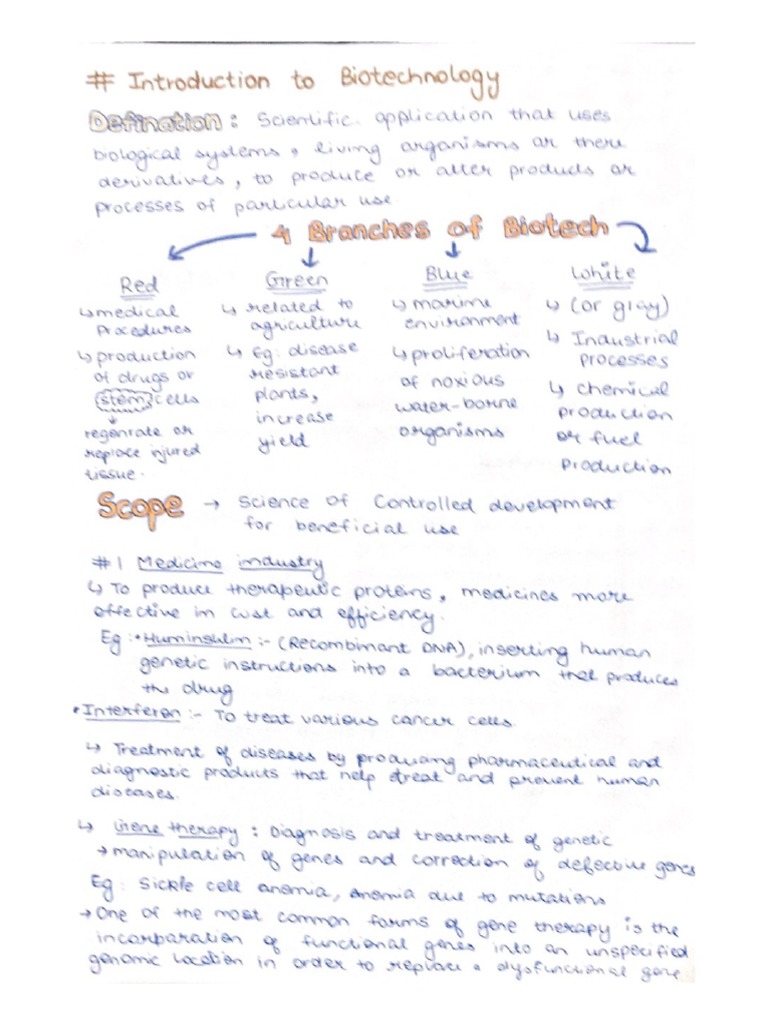 # Introduction to Biotechnology
Defination : Scientific application that uses
biological systems, living organisms or there
derivatives, to produce or alter products or
processes of particular use.
4 Branches of Biotech
Red
↳ medical
Procedures
↳ production
of drugs or
stem cells
↓
regenrate or
replace injured
tissue.
Green
↳ related to
agriculture
↳ Eg: disease
resistant
plants,
increase
yield
Blue
↳ marine
environment
↳ proliferation
of noxious
water-borne
organisms
White
↳ (or gray)
↳ Industrial
processes
↳ chemical
production
or fuel
Production
Scope → Science of Controlled development
for beneficial use
#1 Medicine industry
↳ To produce therapeutic proteins, medicines more
effective in cost and efficiency.
Eg :• Huminsulin :- (Recombinant DNA), inserting human
genetic instructions into a bacterium that produces
the drug
• Interferon :- To treat various cancer cells
↳ Treatment of diseases by producing pharmaceutical and
diagnostic products that help treat and prevent human
diseases.
↳ Gene therapy : Diagnosis and treatment of genetic
→ manipulation of genes and correction of defective genes
Eg: Sickle cell anemia, anemia due to mutations
→ One of the most common forms of gene therapy is the
incorparation of functional genes into an unspecified
genomic location in order to replace a dysfunctional gene